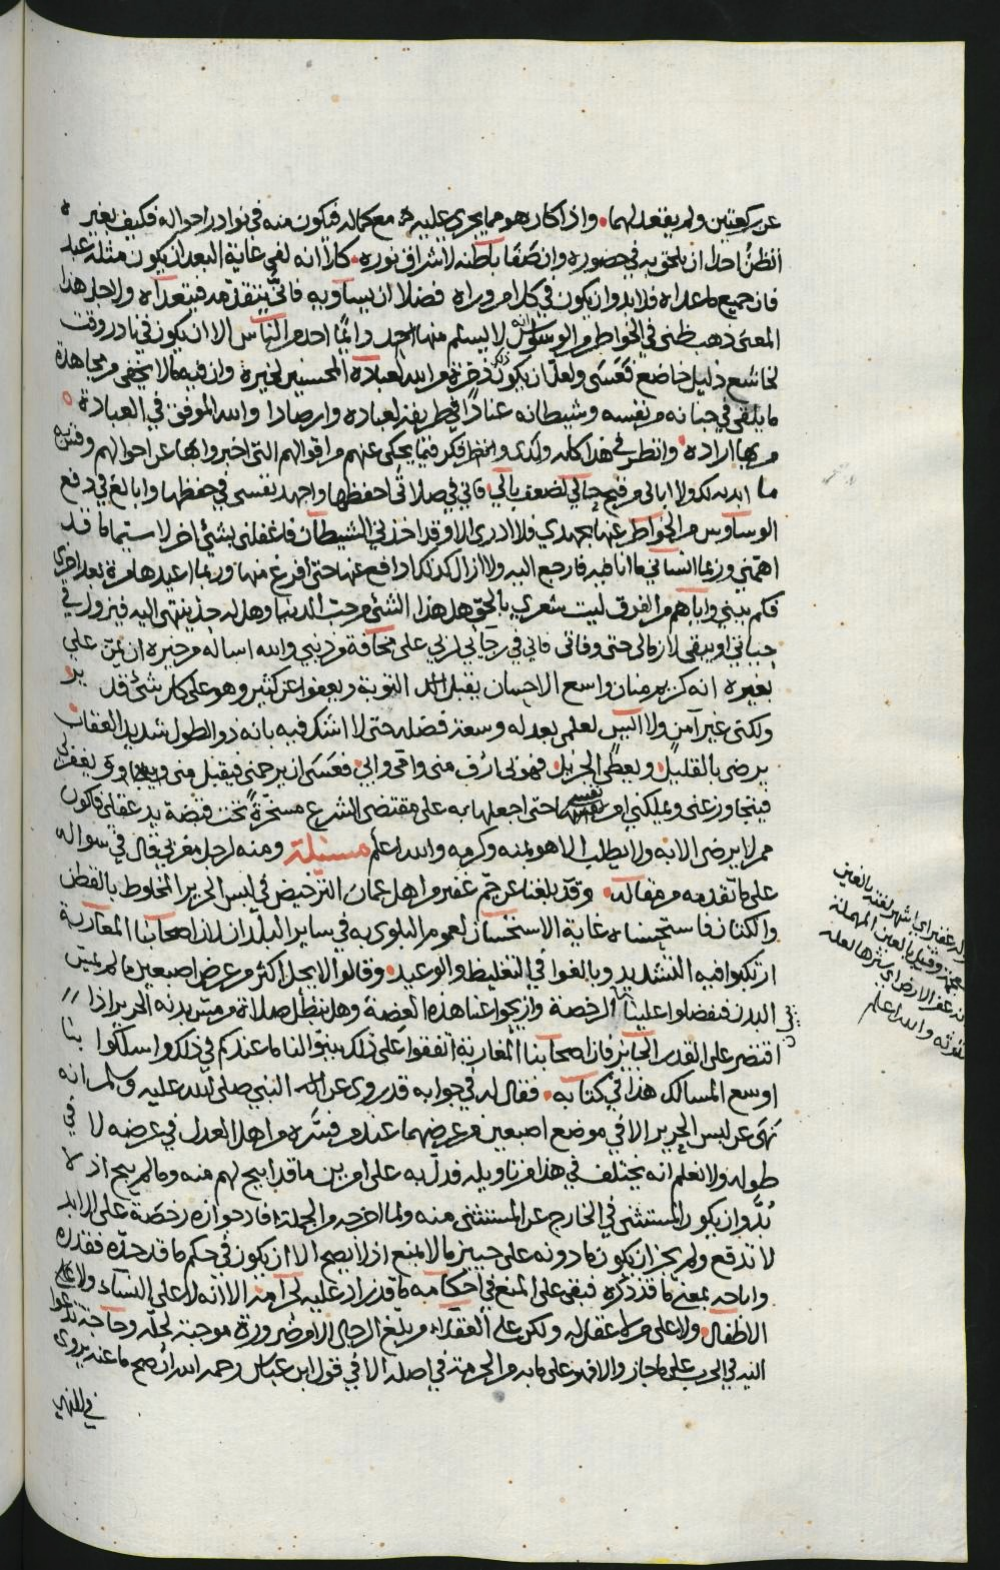 عن ركعتين ولم يفعل لهما، واذا كان هو مما يجري عليه مع كماله فتكون منه في نوادر احواله فكيف بغيره
اتظن احدا ان يلحق به في حضوره وان صفا باطنه لاشراق نوره، كلا انه لفي غاية البعد ان يكون مثله عبد
فان جميع ما عداه فلا بد وان يكون في كل امر وراه فضلا ان يساويه فاني يتقدمه فيتعداه ولاجل هذا
المعنى ذهب ظني في الخواطر والوسوس انه لا يسلم منها احد دائما احد من الناس الا ان يكون في نادر وقت
لخاشع ذليل خاضع فعسى ولعل ان يكون ذلك من الله لعباده المحسنين لخيره وان فيه ما لا يخفى من مجاهدة
ما يلقى في جنانه من نفسه وشيطانه عنادا في طريقه لعباده وارصادا والله الموفق في العبادة
من بها اراده وانظر في هذا كله ولدي فكر فيما يحكى عنهم من اقوالهم التي اخبروا بها عن احوالهم
ما ابديه لك ولا ابالي من قبح حالي لضعف بالي فاني في صلاتي احفظها واجهد نفسي في حفظها وابالغ في دفع
الوساوس من الخواطر عنها بجهدي فلا ادري الا وقد اخذني الشيطان فاغفلني بشيء اخر لا سيما ما قد
اهمني وربما انساني ما انا فيه فارجع اليه ولا ازال كذلك ادافع عنها حتى افرغ منها وربما اعيدها مرة بعد اخرى
فكم بيني واياهم من الفرق ليت شعري بالحق هل هذا الشيء من حب الدنيا وهل له حد ينتهي اليه فيزول في
حياتي او يبقى لازما لي حتى وفاتي فاني في رجائي لربي على مخافة من ذنبي والله اساله من خيره ان يمن علي
بغيره انه كريم منان واسع الاحسان يقبل التوبة ويعفو عن كثير وهو على كل شيء قدير
ولكني غير آمن ولا آيس لعلمي بعدله وسعة فضله حتى لا اشك فيه بانه ذو الطول شديد العقاب
يرضى بالقليل ويعطي الجزيل فهو لي ارأف مني وامي وابي فعسى ان يرحمني فيقبل مني ويغفر لي
فيتجاوز عني ويملكني امر نفسي حتى اجعلها به على مقتضى الشرع مسخرة تحت قبضة يد عقلي فاكون
ممن لا يرضى الا به ولا يطلب الا هو بمنه وكرمه والله اعلم مسئلة ومنه لرجل مغربي قال في سواله
على ما تقدمه من مقالة، وقد بلغنا عن جم غفير من اهل عمان الترخيص في لبس الحرير المخلوط بالقطن
والكتان فاستحسناه غاية الاستحسان لعموم البلوى به في ساير البلدان لان اصحابنا المغاربة
ارتكبوا فيه التشديد وبالغوا في التغليظ والوعيد، وقالوا لا يحل اكثر من عرض اصبعين ما لم يمس
البدن فتفضلوا علينا ببيان الرخصة وازيحوا عنا هذه الغصة وهل تبطل صلاة من مس بدنه الحرير اذا
اقتصر على القدر الجايز فان اصحابنا المغاربة اتفقوا على ذلك بينوا لنا ما عندكم في ذلك واسلكوا بنا
اوسع المسالك هذا في كتابه، فقال له في جوابه قد روي عن النبي صلى الله عليه وسلم انه
نهى عن لبس الحرير الا في موضع اصبعين من عرضهما عند من فسره من اهل العدل في عرضه لا
طوله ولا نعلم انه يختلف في هذا من تاويله فدل به على امرين ما قد ابيح لهم منه وما لم يبح اذ لا
بد وان يكون المستثنى في الخارج عن المستثنى منه ولما اخرجه من الجملة افاد جوازه رخصة على الراي
لا تدفع ولم يجز ان يكون ما دونه على حييز ما لا يمنع اذ لا يصح الا ان يكون في حكم ما قد حده فقدره
واباحه بمعنى ما قد ذكره فبقي على المنع في احكامه ما قد زاد عليه لحرامه الا انه لا على النساء ولا على
الاطفال ولا على من لا عقل له ولكن على العقلاء من بلغ الرجال الا من ضرورة موجبة لحله وحاجة تدعوا
اليه في الحرب على ما جاز والا فهو على ما به من الحرمة في اصله الا في قول ابن عباس رحمه الله ان صح ما عنه يروى
في النهي
غفير اي اشهر لغته بالغين
المعجمة وقيل بالعين المهملة
عفر الارض اي سترها لعله
والله اعلم